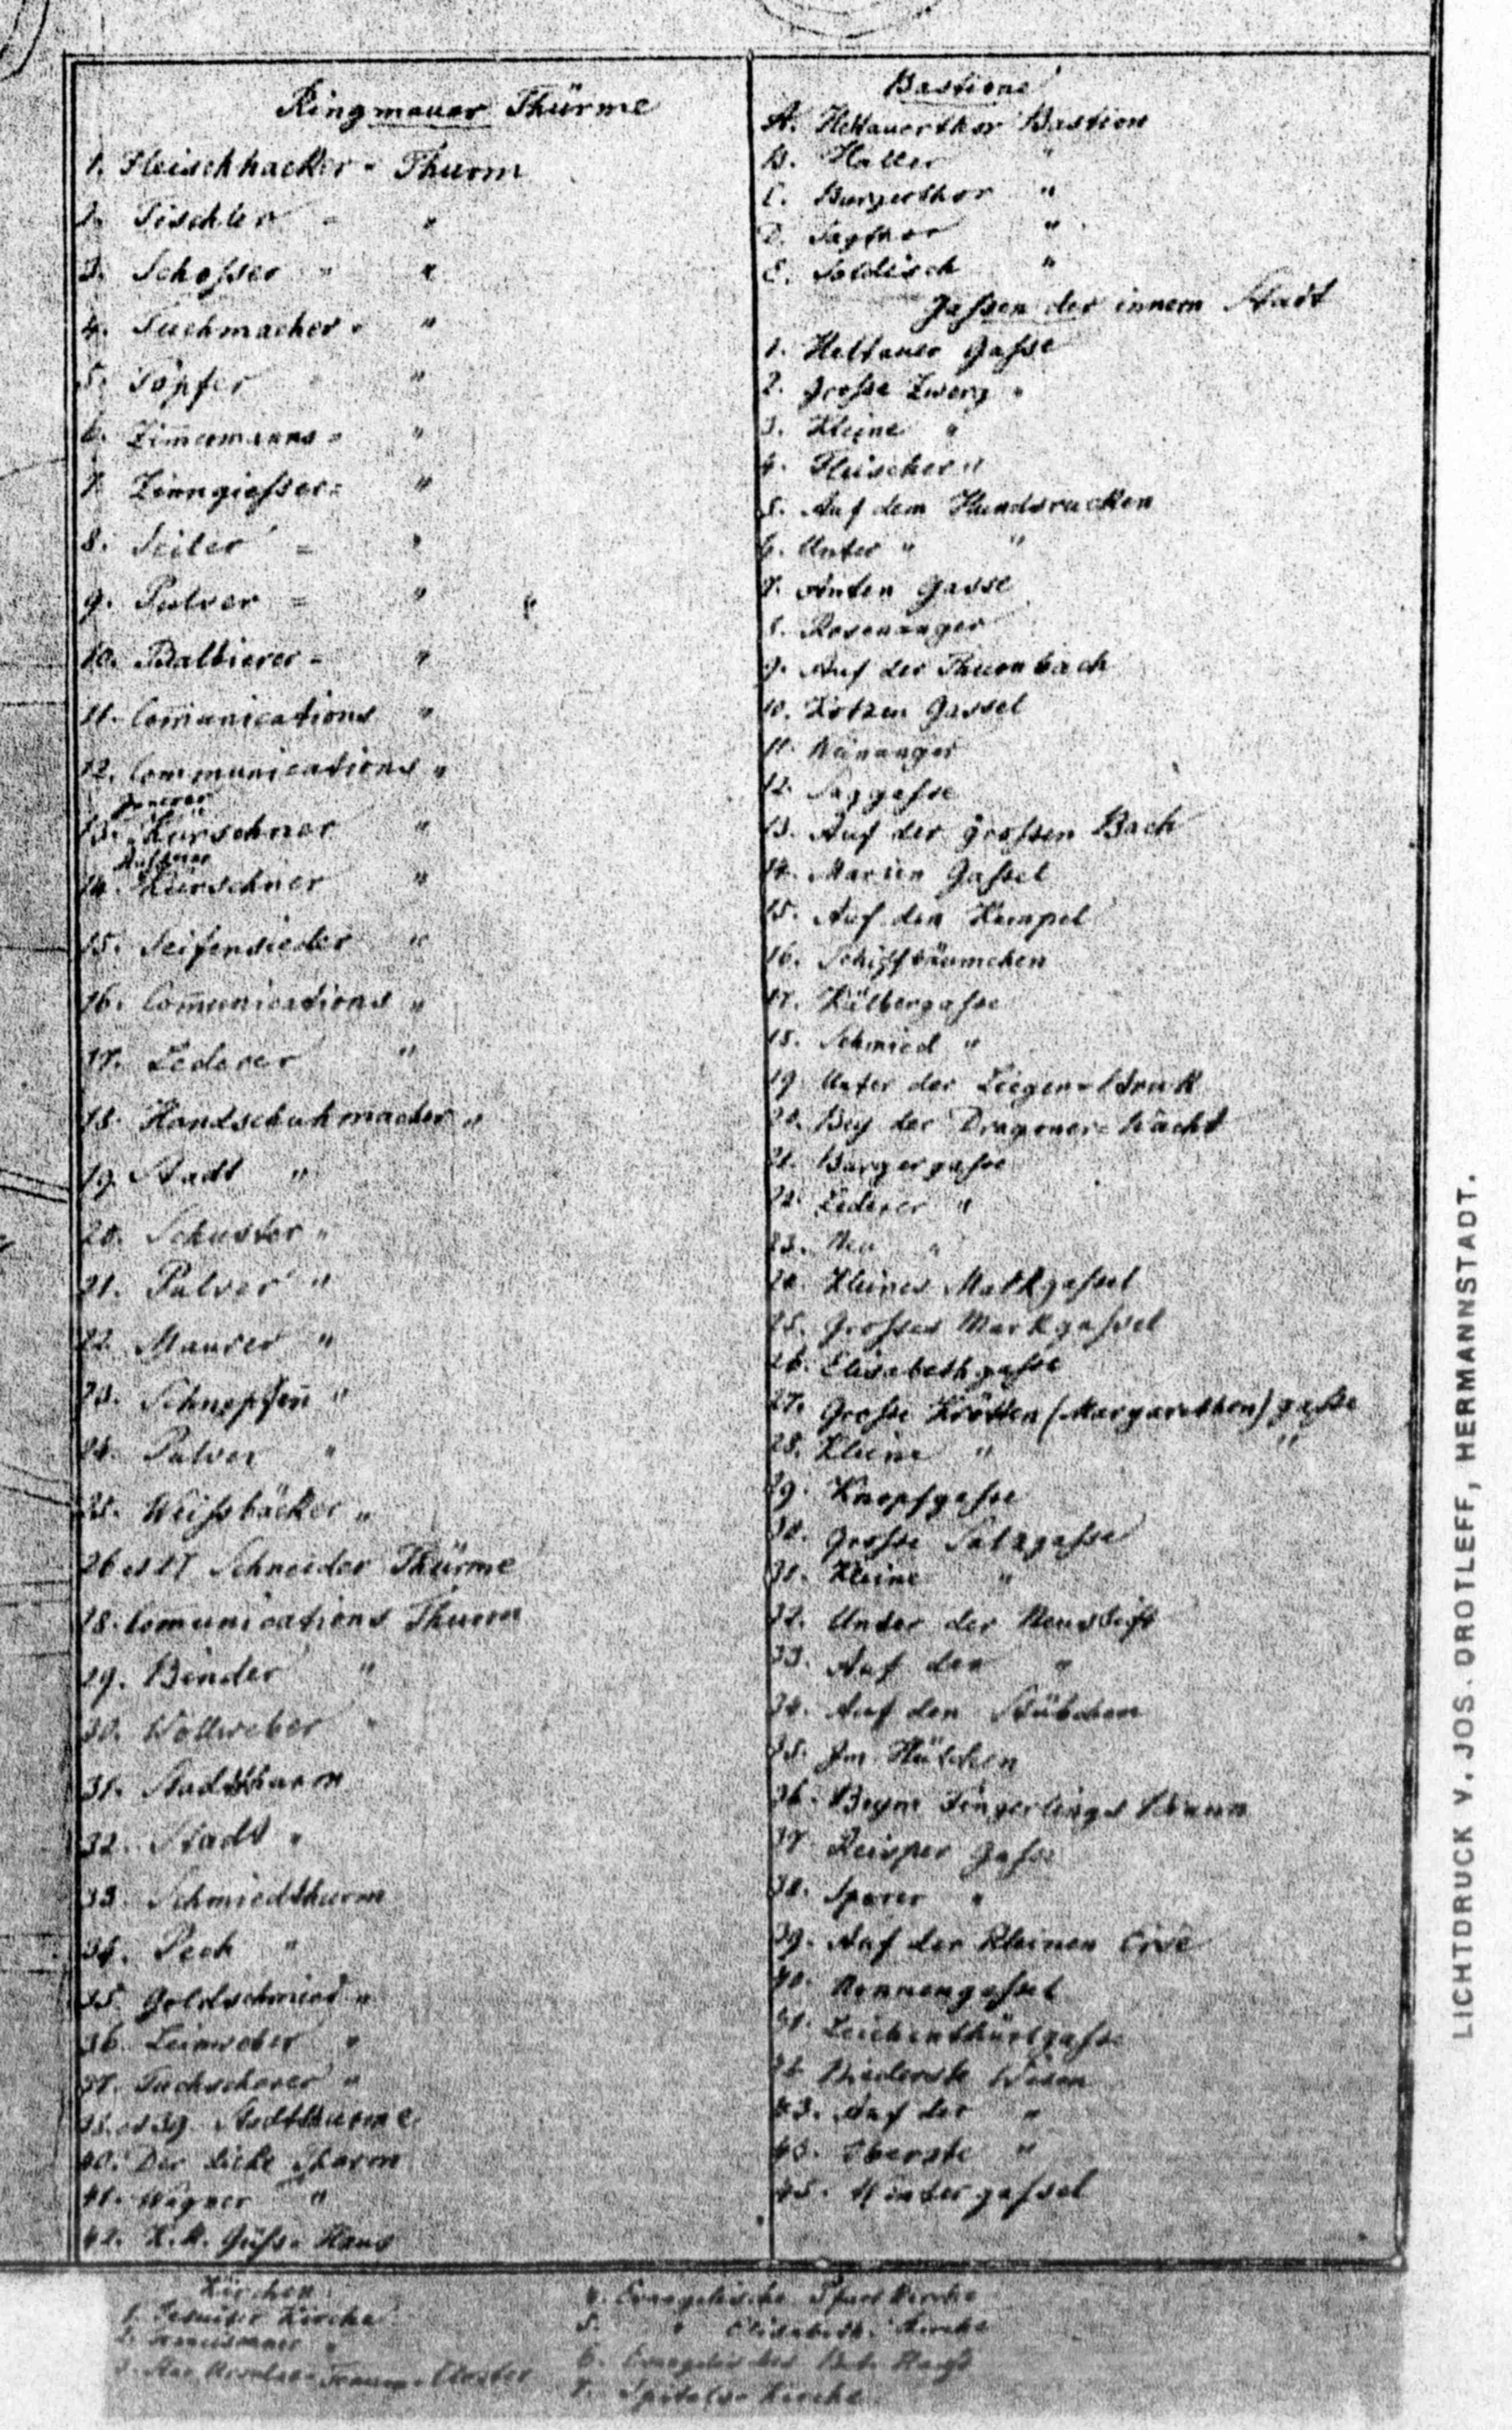 Ringmauer Thürme
1. Fleischhacker - Thurm
2. Tischler - "
3. Schosser - "
4. Tuchmacher - "
5. Töpfer "
6. Zim̄ermanns - "
7. Zinngiesser - "
8. Seiler = "
9. Pulver = "
10. Balbierer - "
11. Com̄unications "
12. Communications "
13. Innerer Kürschner "
14. Äusserer Kürschner "
15. Seifensieder "
16. Com̄unications "
17. Lederer "
18. Handschuhmacher "
19. Stadt "
20. Schuster "
21. Pulver "
22. Maurer "
23. "
24. Pulver "
25. Weissbäcker "
26 et 27 Schneider Thürme
28. Com̄unications Thurm
29. Binder "
30. Wollweber "
31. Stadtthurm
32. Stadt "
33. Schmiedthurm
34. Pech "
35. Goldschmied "
36. Leinweber "
37. Tuchscherer "
38. et 39. Stadtthürme
40. Der dicke Thurm
41. Wagner "
42. K.K. Haus
Bastione
A. Heltauerthor Bastion
B. Haller "
C. Burgerthor "
D. Sagthor "
E. Soldisch "
Gassen der innern Stadt
1. Heltauer Gasse
2. Grosse Zwerg "
3. Kleine "
4. Fleischer "
5. Auf dem Hundsrucken
6. Unter " "
7. Gasse
8. Rosenanger
9. Auf der Thurnbach
10. Kotzen Gassel
11. Weinanger
12. Saggasse
13. Auf der grossen Bach
14. Marien Gassel
15. Auf den Hempel
16. Schiffbäumchen
17. Kälbergasse
18. Schmied "
19. Unter der
20. Bey der Dragoner = Wacht
21. Burgergasse
22. Lederer "
23. Neu "
24. Kleines Markgassel
25. Grosses Markgassel
26. Elisabethgasse
27. Grosse Krötten (Margarethen) gasse
28. Kleine " "
29. Knopfgasse
30. Grosse Salzgasse
31. Kleine "
32. Unter der Neustift
33. Auf der "
34. Auf den Stübchen
35. Im
36. Beym Fingerlings Brunn
37. Reisper Gasse
38. Sporer "
39. Auf der kleinen Erde
40. Nonnengassel
41. Leichenthürlgasse
42. Niederste Wiesen
43. Auf der "
44. Oberste "
45. Hintergassel
Kirchen
1. Jesuiter Kirche
2. "
3. Kloster
4. Evangelische Pfarr Kirche
5. " Elisabeth. Kirche
6.
7. Spitals = Kirche
LICHTDRUCK V. JOS. DROTLEFF, HERMANNSTADT.